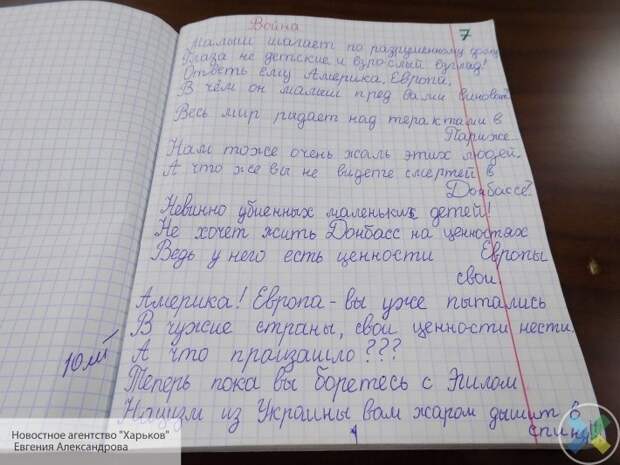 Война
7
Малыш шагает по разрушенному
Глаза не детские и взрослый взгляд!
Ответь ему Америка, Европа,
В чём он малыш пред вами виноват
Весь мир рыдает над терактами в
Париже...
Нам тоже очень жаль этих людей,
А что же вы не видете смертей в
Донбассе?
Невинно убиенных маленьких детей!
Не хочет жить Донбасс на ценностях
Европы
Ведь у него есть ценности
свои
Америка! Европа - вы уже пытались
В чужие страны, свои ценности нести.
10 лет
А что произашло ???
Теперь пока вы боретесь с Игилом,
Нацизм из Украины вам жаром дышит в
спину!
Новостное агентство "Харьков"
Евгения Александрова